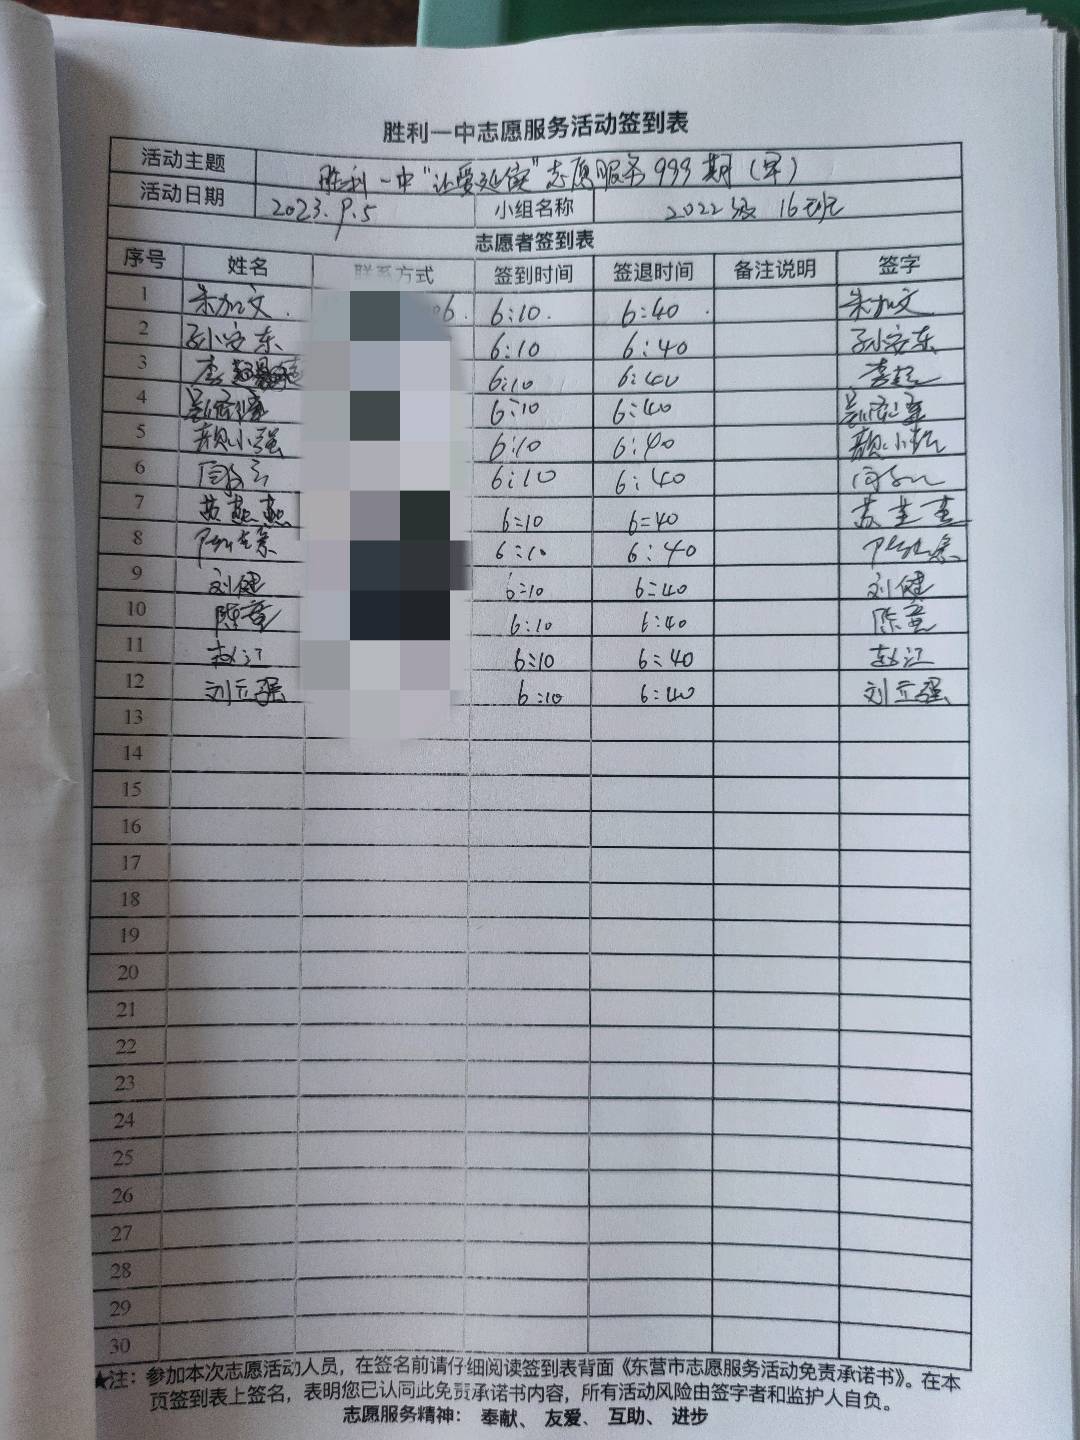 胜利一中志愿服务活动签到表
活动主题 胜利一中"让爱延续"志愿服务999期(早)
活动日期 2023.9.5 小组名称 2022级 16班
志愿者签到表
序号 姓名 联系方式 签到时间 签退时间 备注说明 签字
1 朱加文 06. 6:10. 6:40. 朱加文
2 孙安东 6:10 6:40 孙安东
3 李 6:10 6:40
4 6:10 6:40
5 颜小强 6:10 6:40 颜小强
6 6:10 6:40
7 6:10 6:40
8 6:10 6:40
9 刘健 6:10 6:40 刘健
10 陈童 6:10 6:40 陈童
11 赵江 6:10 6:40 赵江
12 刘立强 6:10 6:40 刘立强
13
14
15
16
17
18
19
20
21
22
23
24
25
26
27
28
29
30
★注:参加本次志愿活动人员,在签名前请仔细阅读签到表背面《东营市志愿服务活动免责承诺书》。在本
页签到表上签名,表明您已认同此免责承诺书内容,所有活动风险由签字者和监护人自负。
志愿服务精神: 奉献、 友爱、 互助、 进步